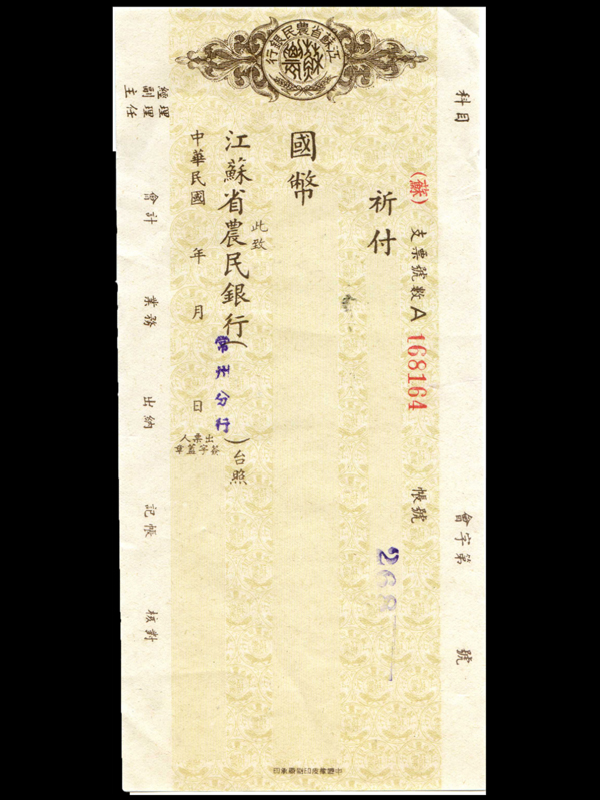 江蘇省農民銀行
科目
會字第 號
(蘇) 支票號數 A 168164 帳號 268
祈付
國幣
此致
江蘇省農民銀行( 分行)台照
中華民國 年 月 日
出票人
簽字蓋章
經理
副理
主任
會計
業務
出納
記帳
核對